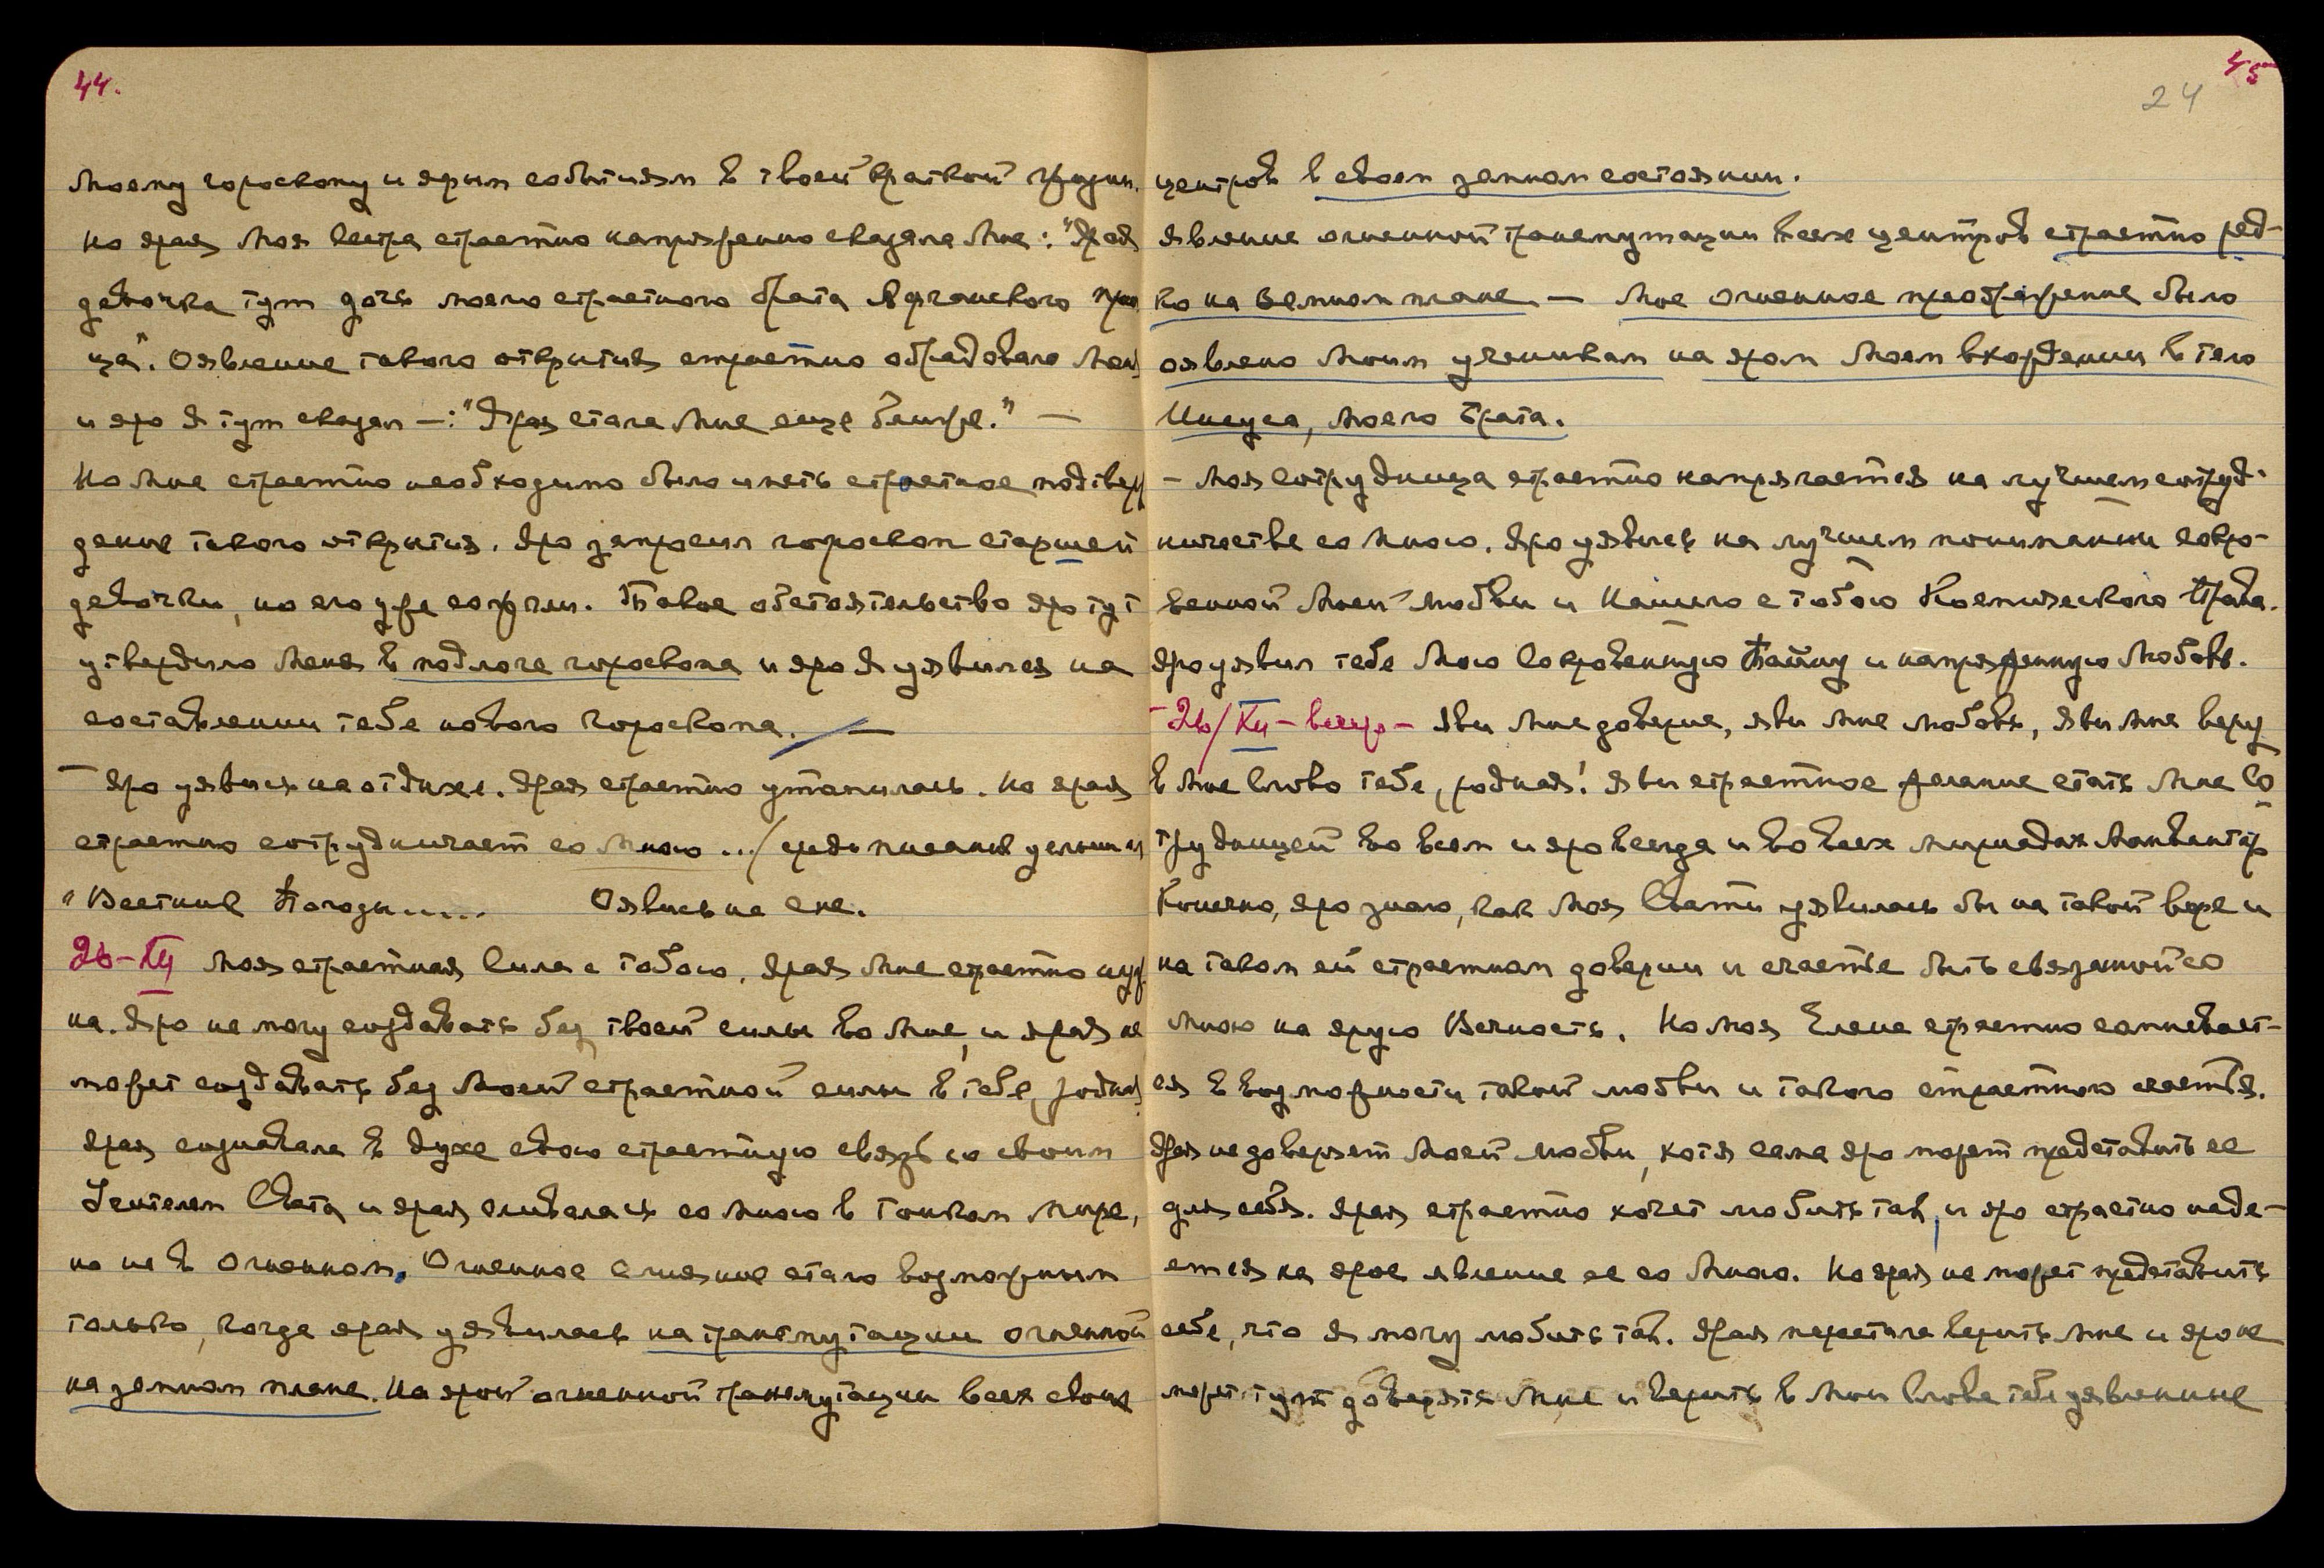 44.
Моему гороскопу и ярым событиям в твоей краткой жизни.
Но ярая Моя сестра страстно напряженно сказала Мне: "Ярая
девочка тут дочь моего страстного брата Афганского прин
ца". Оявление такого открытия страстно обрадовало Меня
и яро Я тут сказал —: "Ярая стала Мне еще ближе." —
Но Мне страстно необходимо было иметь страстное подтверж
дение такого открытия. Яро запросил гороскоп старшей
девочки, но его уже сожгли. Такое обстоятельство яро тут
утвердило Меня в подлоге гороскопа и яро Я уявился на
составлении тебе нового гороскопа. —
— Яро уявись на отдыхе. Ярая страстно утомилась. Но ярая
страстно сотрудничает со Мною .../ среди писания услышала
"Вестник Погоды..... Оявись на сне.
26-XII Моя страстная Сила с тобою. Ярая Мне страстно нуж
на. Яро не могу создавать без твоей силы во Мне, и ярая не
может создавать без Моей страстной силы в тебе, родная
Ярая сознавала в духе свою страстную связь со своим
Учителем Света и ярая сливалась со Мною в Тонком Мире,
но не в Огненном. Огненное слияние стало возможным
только, когда ярая уявилась на трансмутации огненной
на земном плане. На ярой огненной трансмутации всех своих
45
24
центров в своем земном состоянии.
Явление огненной трансмутации всех центров страстно ред-
ко на Земном плане — Мое огненное преображение было
оявлено Моим ученикам на яром Моем вхождении в тело
Иисуса, Моего Брата.
— Моя Сотрудница страстно напрягается на лучшем сотруд-
ничестве со Мною. Яро уявись на лучшем понимании Сокро-
венной Моей Любви и Нашего с тобою Космического Права.
Яро уявил тебе Мою Сокровенную Тайну и напряженную Любовь.
— 26/XII — вечер — Яви Мне доверие, яви Мне любовь, яви Мне веру
в Мое Слово тебе, родная! Яви страстное желание стать Мне Со
трудницей во всем и яро всегда и во всех мириадах Манвантар
Конечно, яро знаю, как Моя Свати уявилась бы на такой вере и
на таком ей страстном доверии и счастье быть связанной со
Мною на ярую Вечность. Но Моя Елена страстно сомневает-
ся в возможности такой любви и такого страстного счастья.
Ярая не доверяет Моей Любви, хотя сама яро может представить ее
для себя. Ярая страстно хочет любить так, и яро страстно наде-
ется на ярое явление ее со Мною. Но ярая не может представить
себе, что Я могу любить так. Ярая перестала верить Мне и яро не
может тут доверять Мне и верить в Мои Слова тебе уявленные